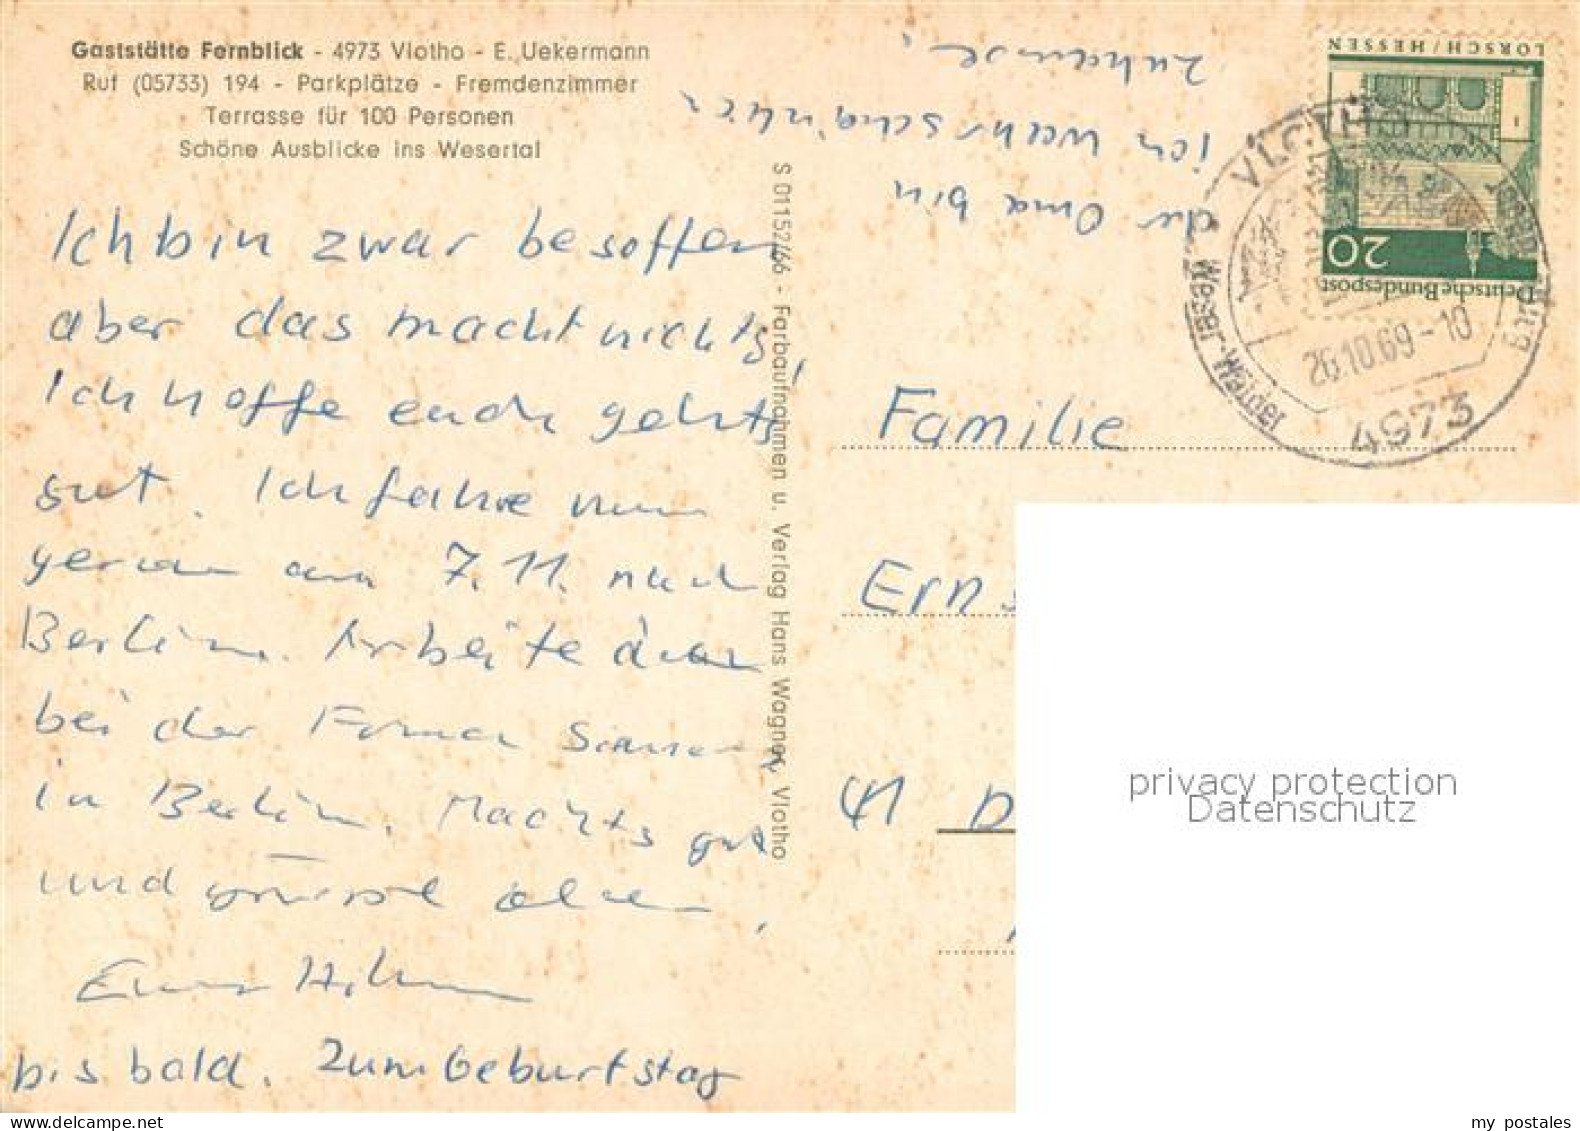 Gaststätte Fernblick - 4973 Vlotho - E. Uekermann
Ruf (05733) 194 - Parkplätze - Fremdenzimmer
Terrasse für 100 Personen
Schöne Ausblicke ins Wesertal
Ich bin zwar besoffen
aber das macht nichts!
Ich hoffe euch gehts
gut. Ich fahre nun
genau am 7.11. nach
Berlin. Arbeite dann
bei der Firma
in Berlin. Machts gut
und grüsst alle,
Euer
bis bald. Zum Geburtstag
der Oma bin
ich wahrscheinlich
zuhause.
S 01152/66 - Farbaufnahmen u. Verlag Hans Wagner, Vlotho
LORSCH / HESSEN
20
Deutsche Bundespost
VLOTHO
Weser-Wälder
26.10.69-10
4973
Familie
Ern
privacy protection
Datenschutz
my postales